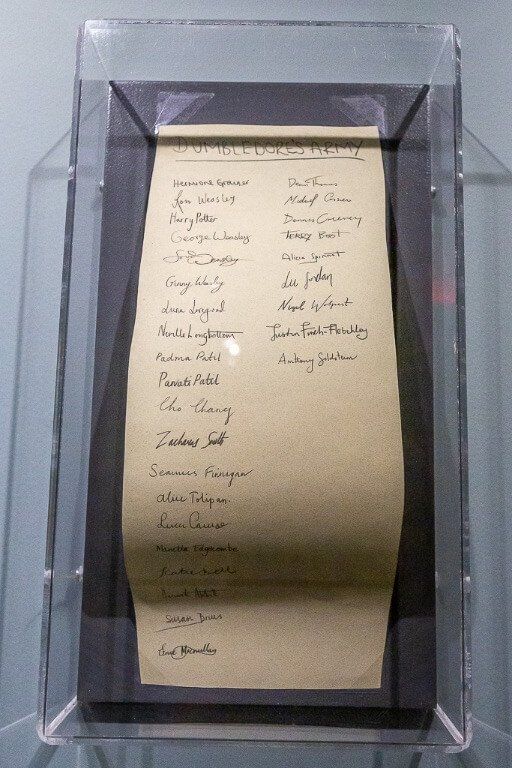 DUMBLEDORE'S ARMY
HERMIONE GRANGER
Ron Weasley
Harry Potter
George Weasley
Fred Weasley
Ginny Weasley
Luna Lovegood
Neville Longbottom
Padma Patil
Parvati Patil
Cho Chang
Zacharias Smith
Seamus Finnigan
Alic Tolipan.
Luca Caruso
Marietta Edgecombe
Katie Bell
Susan Bones
Ernie Macmillan
Dean Thomas
Michael Corner
Dennis Creevey
TERRY BOOT
Alicia Spinnet
Lee Jordan
Nigel Wolpert
Justin Finch-Fletchley
Anthony Goldstein